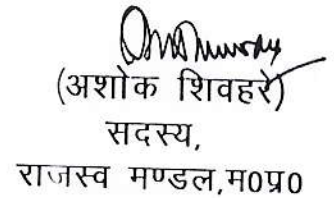 (अशोक शिवहरे)
सदस्य,
राजस्व मण्डल,म०प्र०